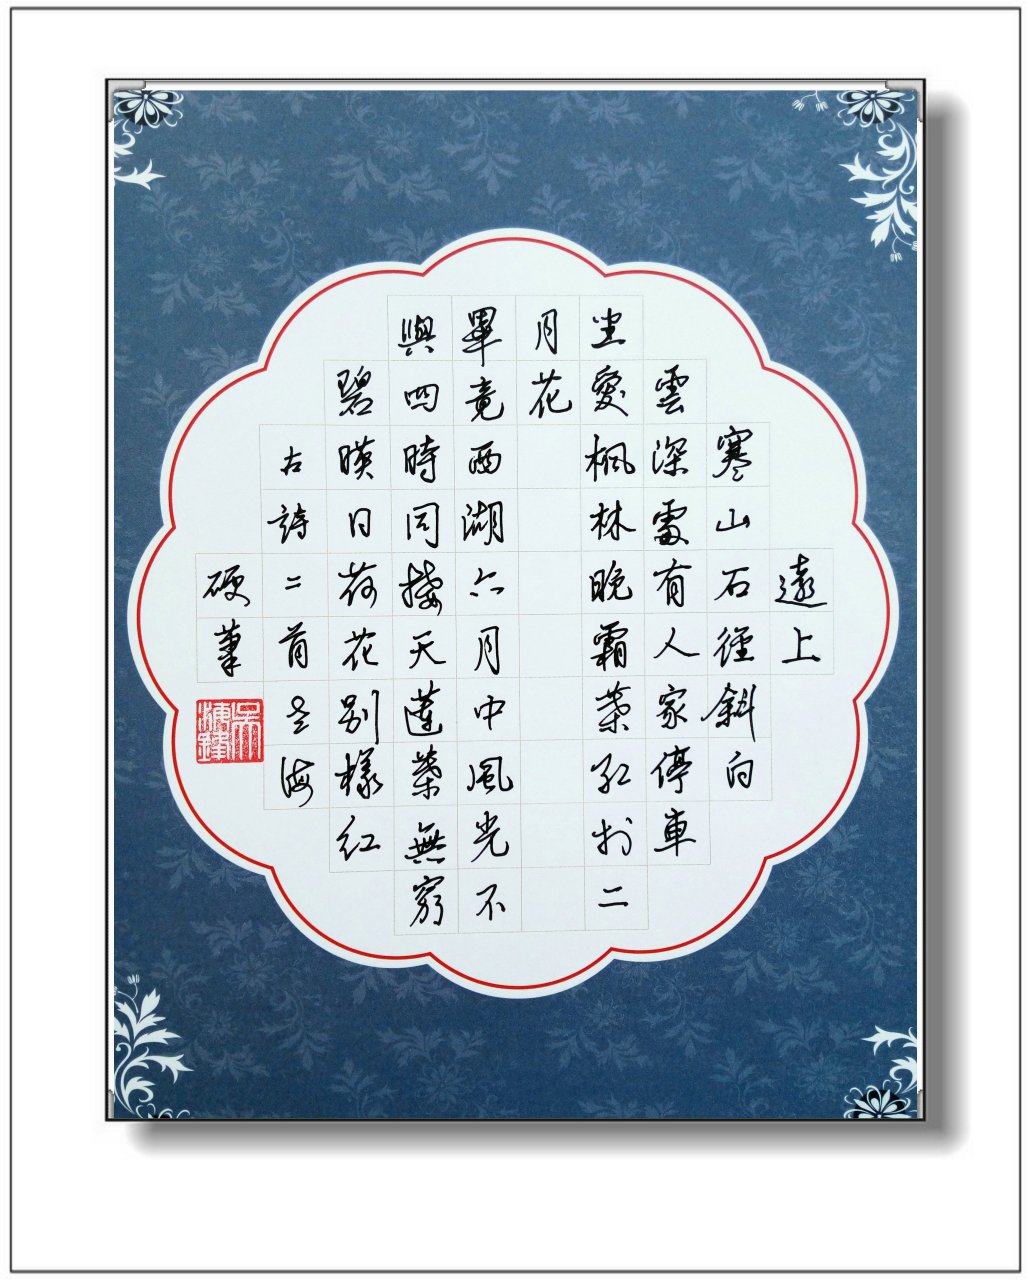 遠上
寒山石徑斜白
雲深處有人家停車
坐愛楓林晚霜葉紅於二
月花
畢竟西湖六月中風光不
與四時同接天蓮葉無窮
碧暎日荷花別樣紅
古詩二首海
硬筆